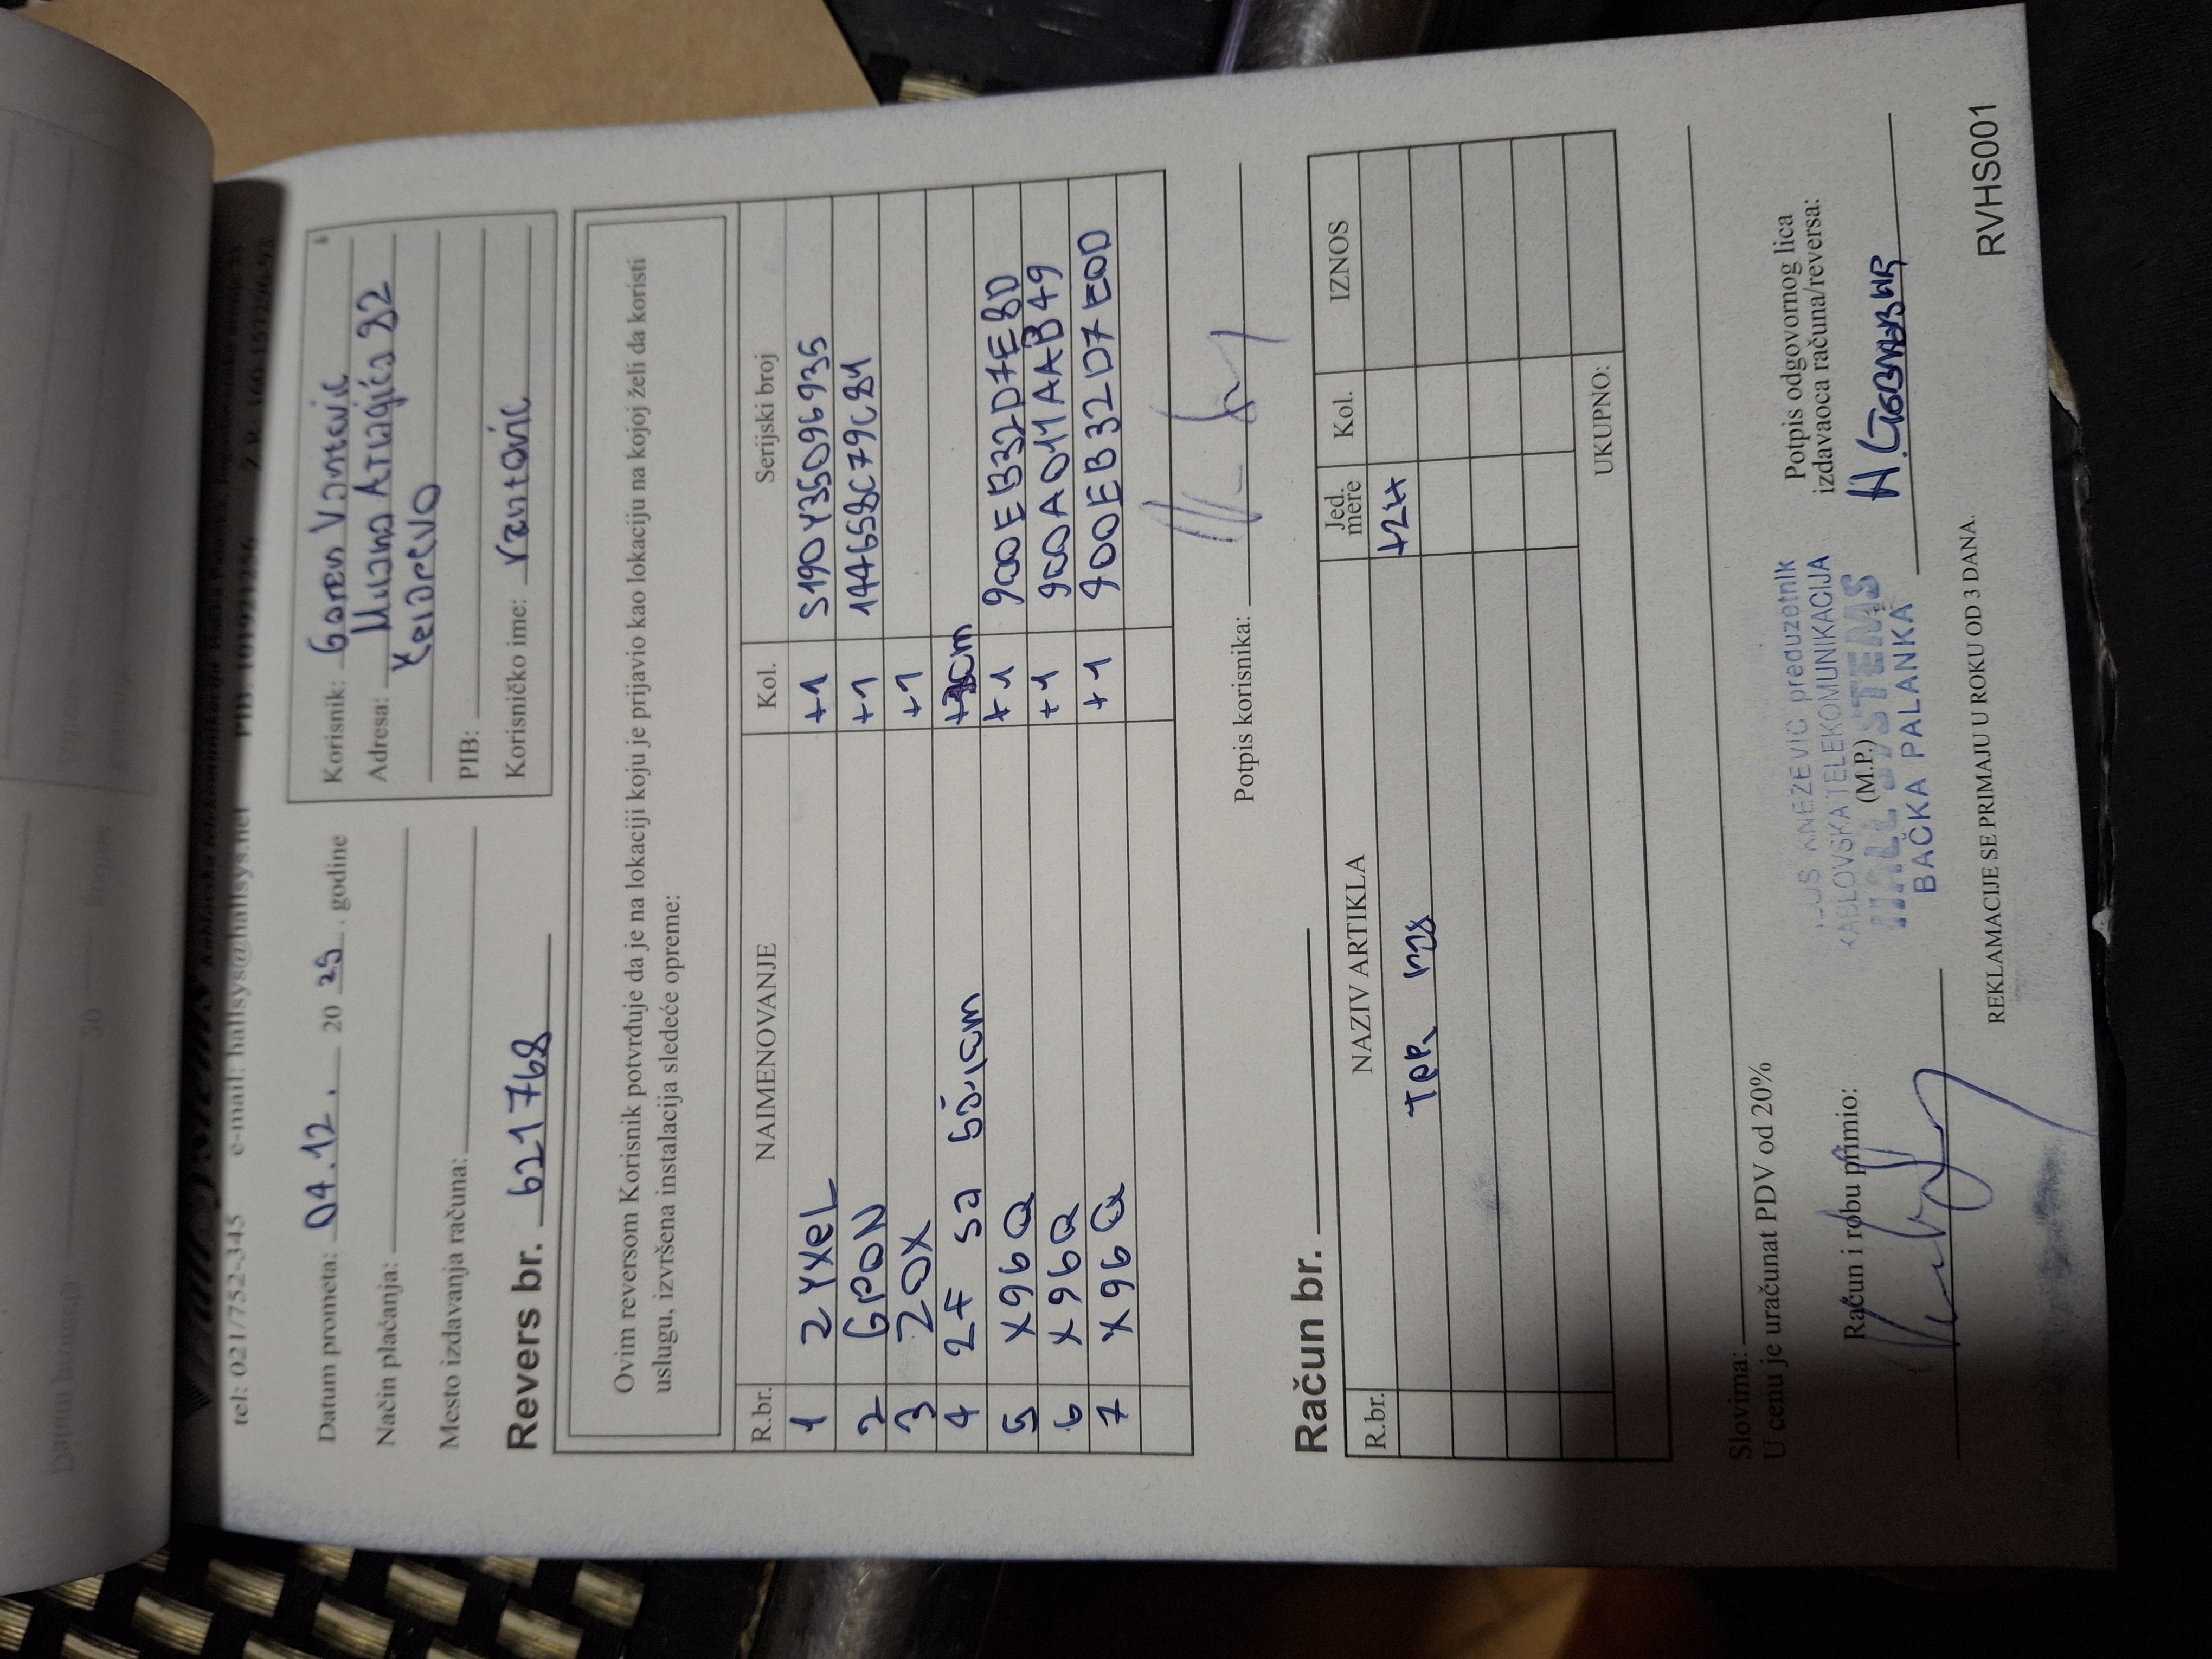 tel: 021/752-345 e-mail: hallsys@hallsys.net
Datum prometa: 04.12. 20 25. godine
Način plaćanja:
Mesto izdavanja računa:
Korisnik: Goren
Adresa: 82
PIB:
Korisničko ime: vantovic
Revers br. 621768
Ovim reversom Korisnik potvrđuje da je na lokaciji koju je prijavio kao lokaciju na kojoj želi da koristi
uslugu, izvršena instalacija sledeće opreme:
R.br. NAIMENOVANJE Kol. Serijski broj
1 ZYXEL +1 S190Y35096935
2 GPON +1 144658C79C81
3 ZOX +1
4 2F sa
5 X96Q +1 900EB32D7E8D
6 X96Q +1 900A011AAB49
7 X96Q +1 900EB32D7E0D
Potpis korisnika:
Račun br.
R.br. NAZIV ARTIKLA Jed. mere Kol. IZNOS
UKUPNO:
Slovima:
U cenu je uračunat PDV od 20%
Račun i robu primio:
(M.P.)
Potpis odgovornog lica
izdavaoca računa/reversa:
KNEŽEVIĆ preduzetnik
KABLOVSKA TELEKOMUNIKACIJA
HALL SYSTEMS
BAČKA PALANKA
REKLAMACIJE SE PRIMAJU U ROKU OD 3 DANA.
RVHS001